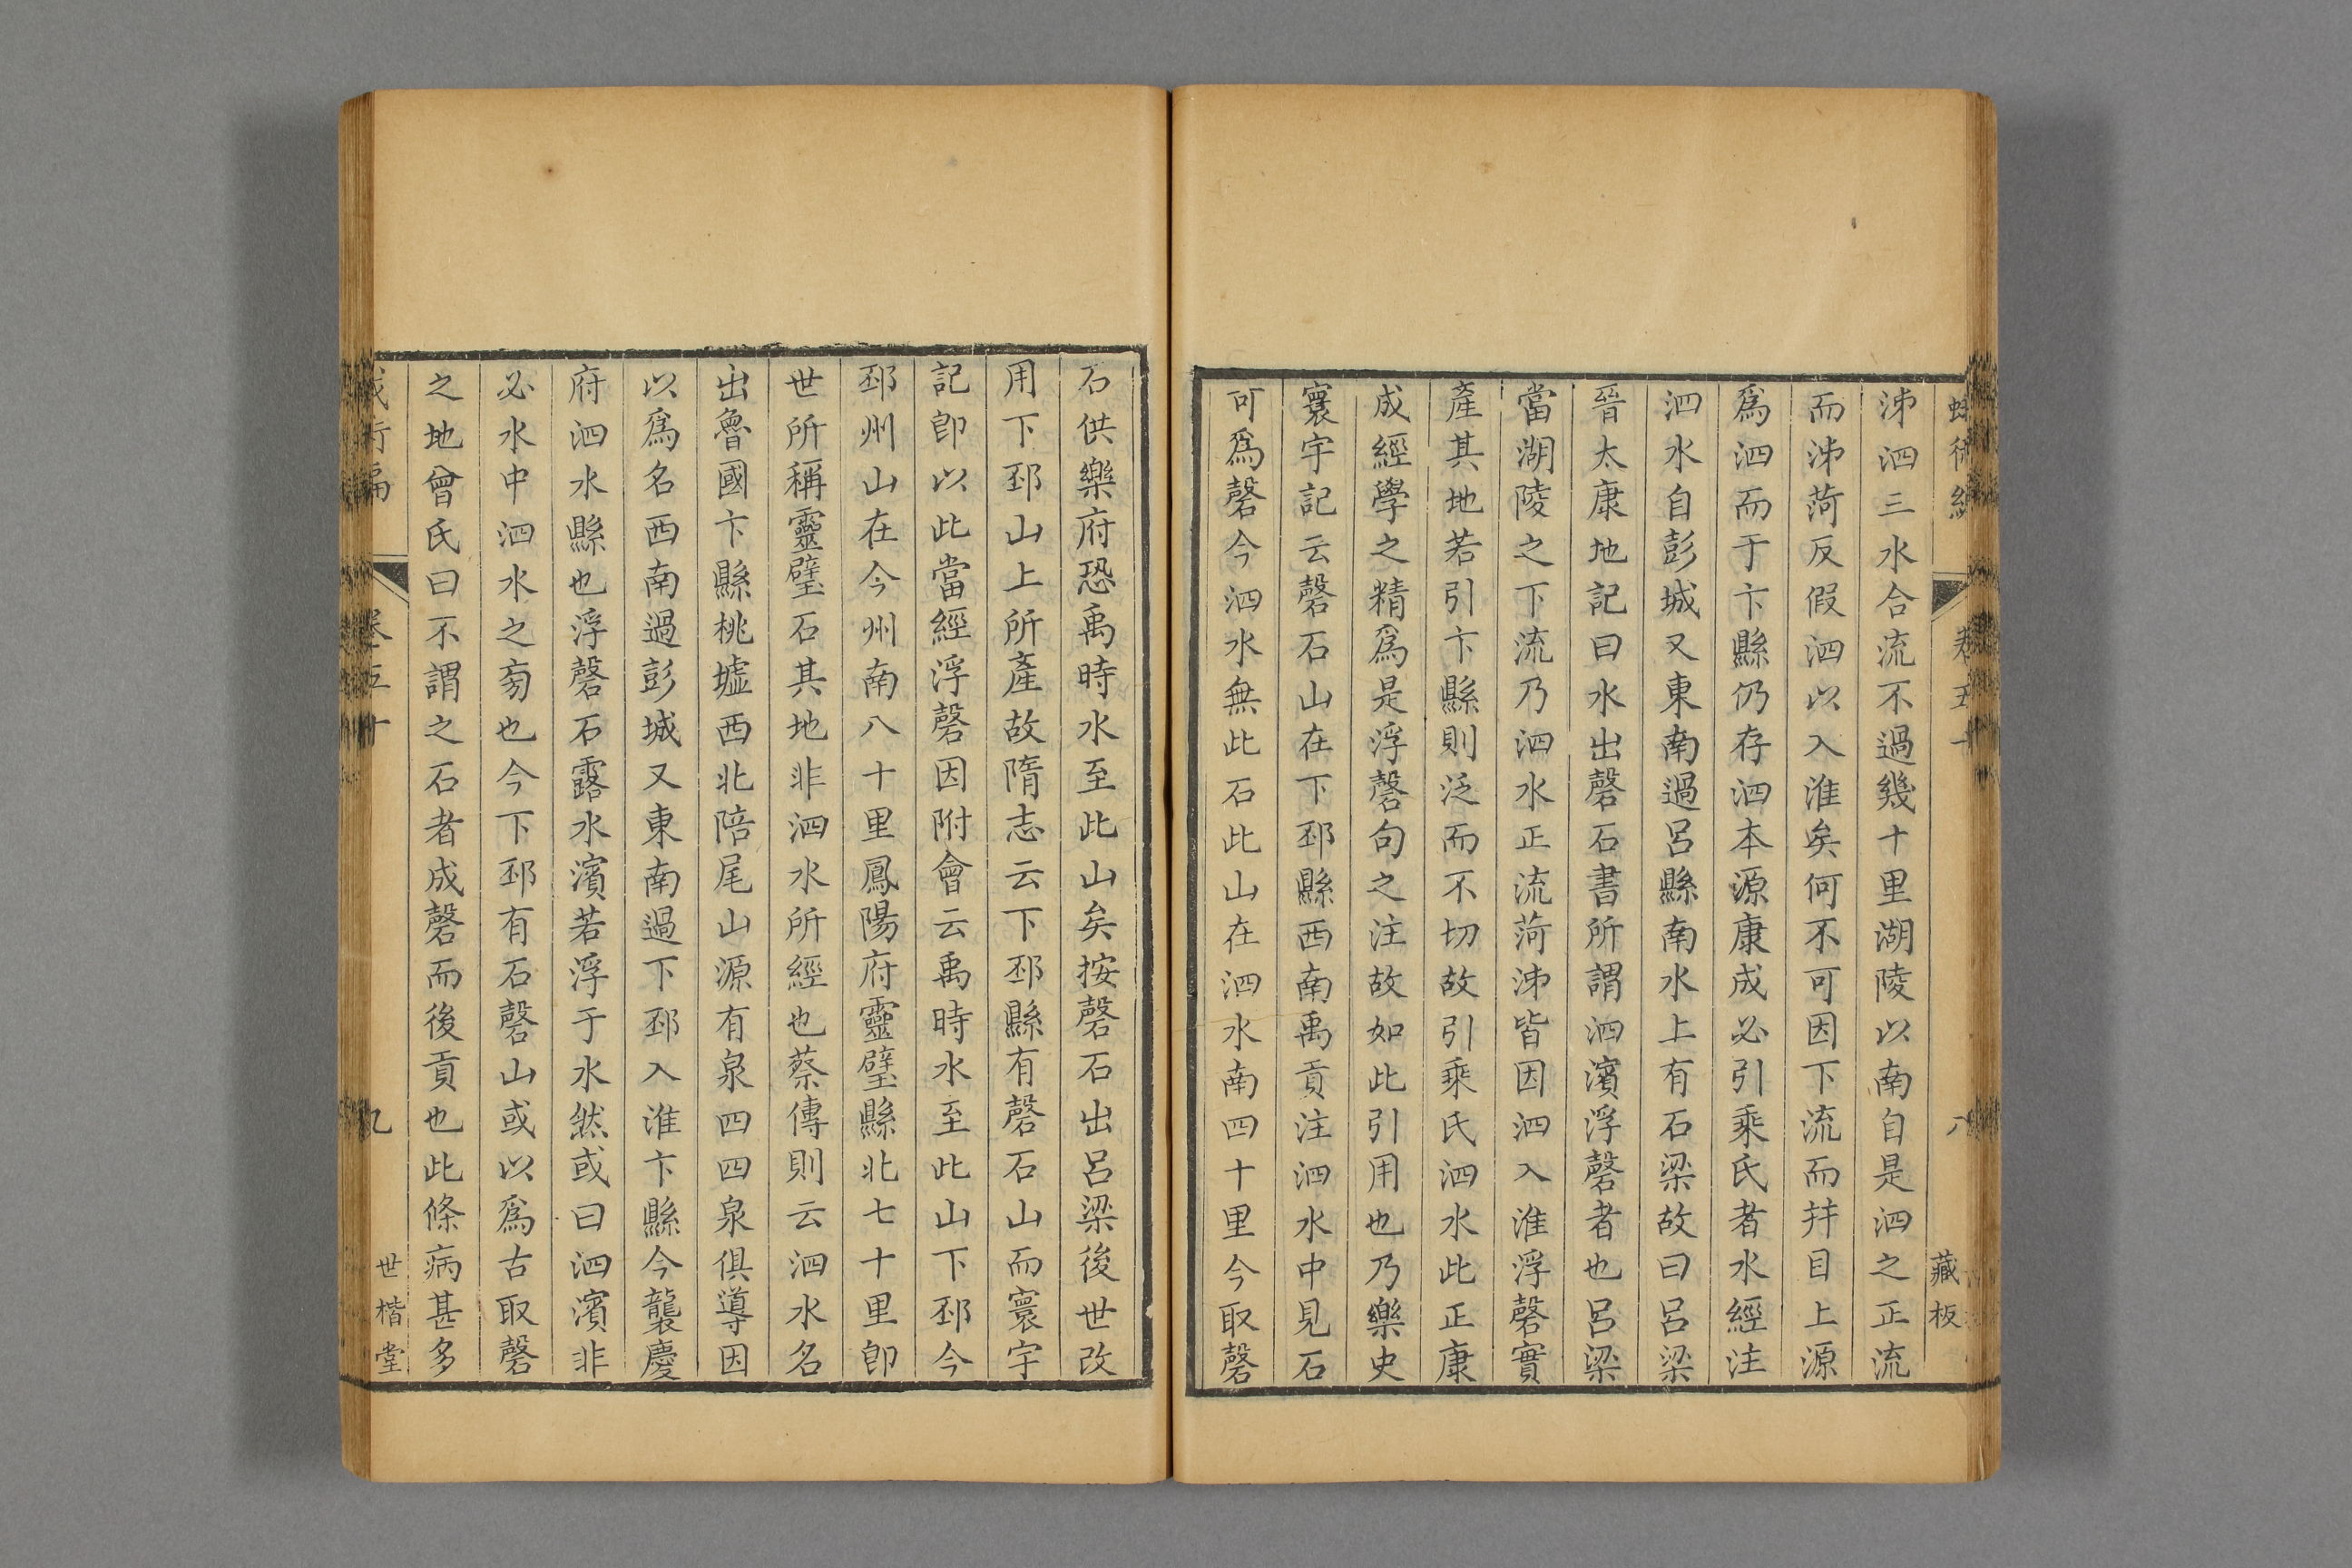 藏板
沛泗三水合流不過幾十里湖陵以南自是泗之正流
而沛菏反假泗以入淮矣何不可因下流而抃目上源
爲泗而于卞縣仍存泗本源康成必引乘氏者水經注
泗水自彭城又東南過呂縣南水上有石梁故曰呂梁
晉太康地記曰水出磬石書所謂泗濱浮磬者也呂梁
當湖陵之下流乃泗水正流菏沛皆因泗入淮浮磬實
產其地若引卞縣則泛而不切故引乘氏泗水此正康
成經學之精爲是浮磬句之注故如此引用也乃樂史
寰宇記云磬石山在下邳縣西南禹貢注泗水中見石
可爲磬今泗水無此石此山在泗水南四十里今取磬
石供樂府恐禹時水至此山矣按磬石出呂梁後世改
用下邳山上所產故隋志云下邳縣有磬石山而寰宇
記卽以此當經浮磬因附會云禹時水至此山下邳今
邳州山在今州南八十里鳳陽府靈璧縣北七十里卽
世所稱靈璧石其地非泗水所經也蔡傳則云泗水名
出魯國卞縣桃墟西北陪尾山源有泉四四泉俱導因
以爲名西南過彭城又東南過下邳入淮卞縣今襲慶
府泗水縣也浮磬石露水濱若浮于水然或曰泗濱非
必水中泗水之㫄也今下邳有石磬山或以爲古取磬
之地曾氏曰不謂之石者成磬而後貢也此條病甚多
卷五十 九 世楷堂